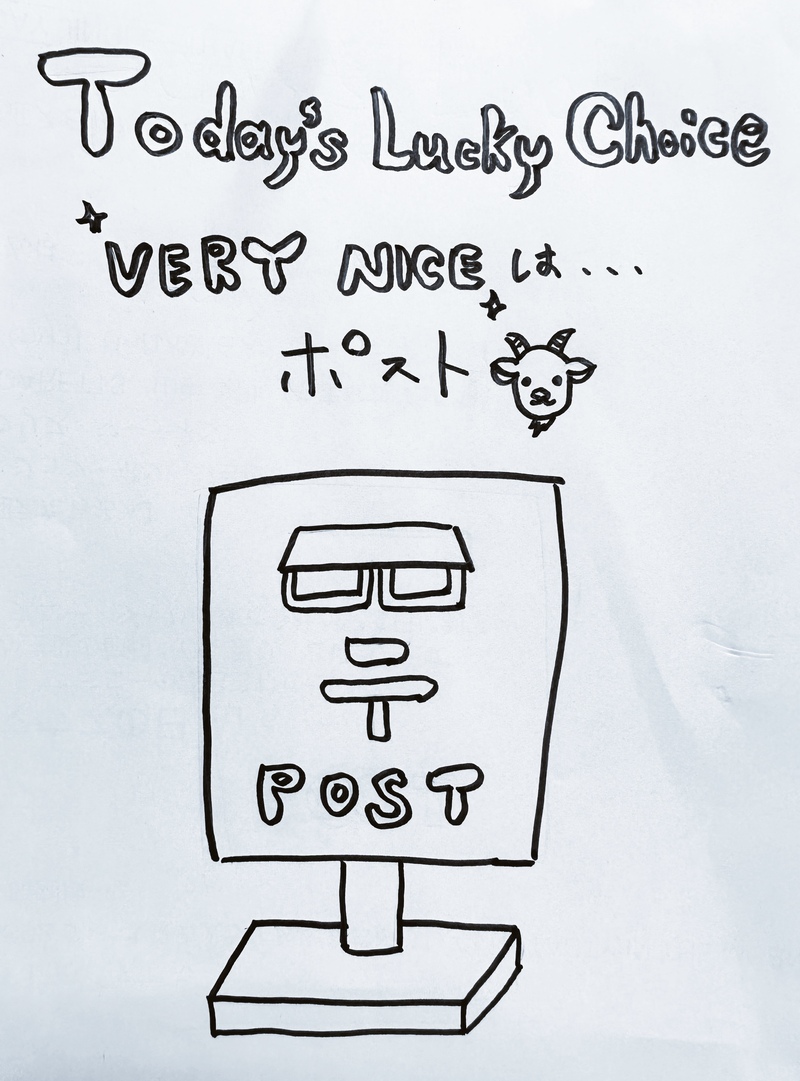 Today's Lucky Choice
VERY NICE は...
ポスト
POST